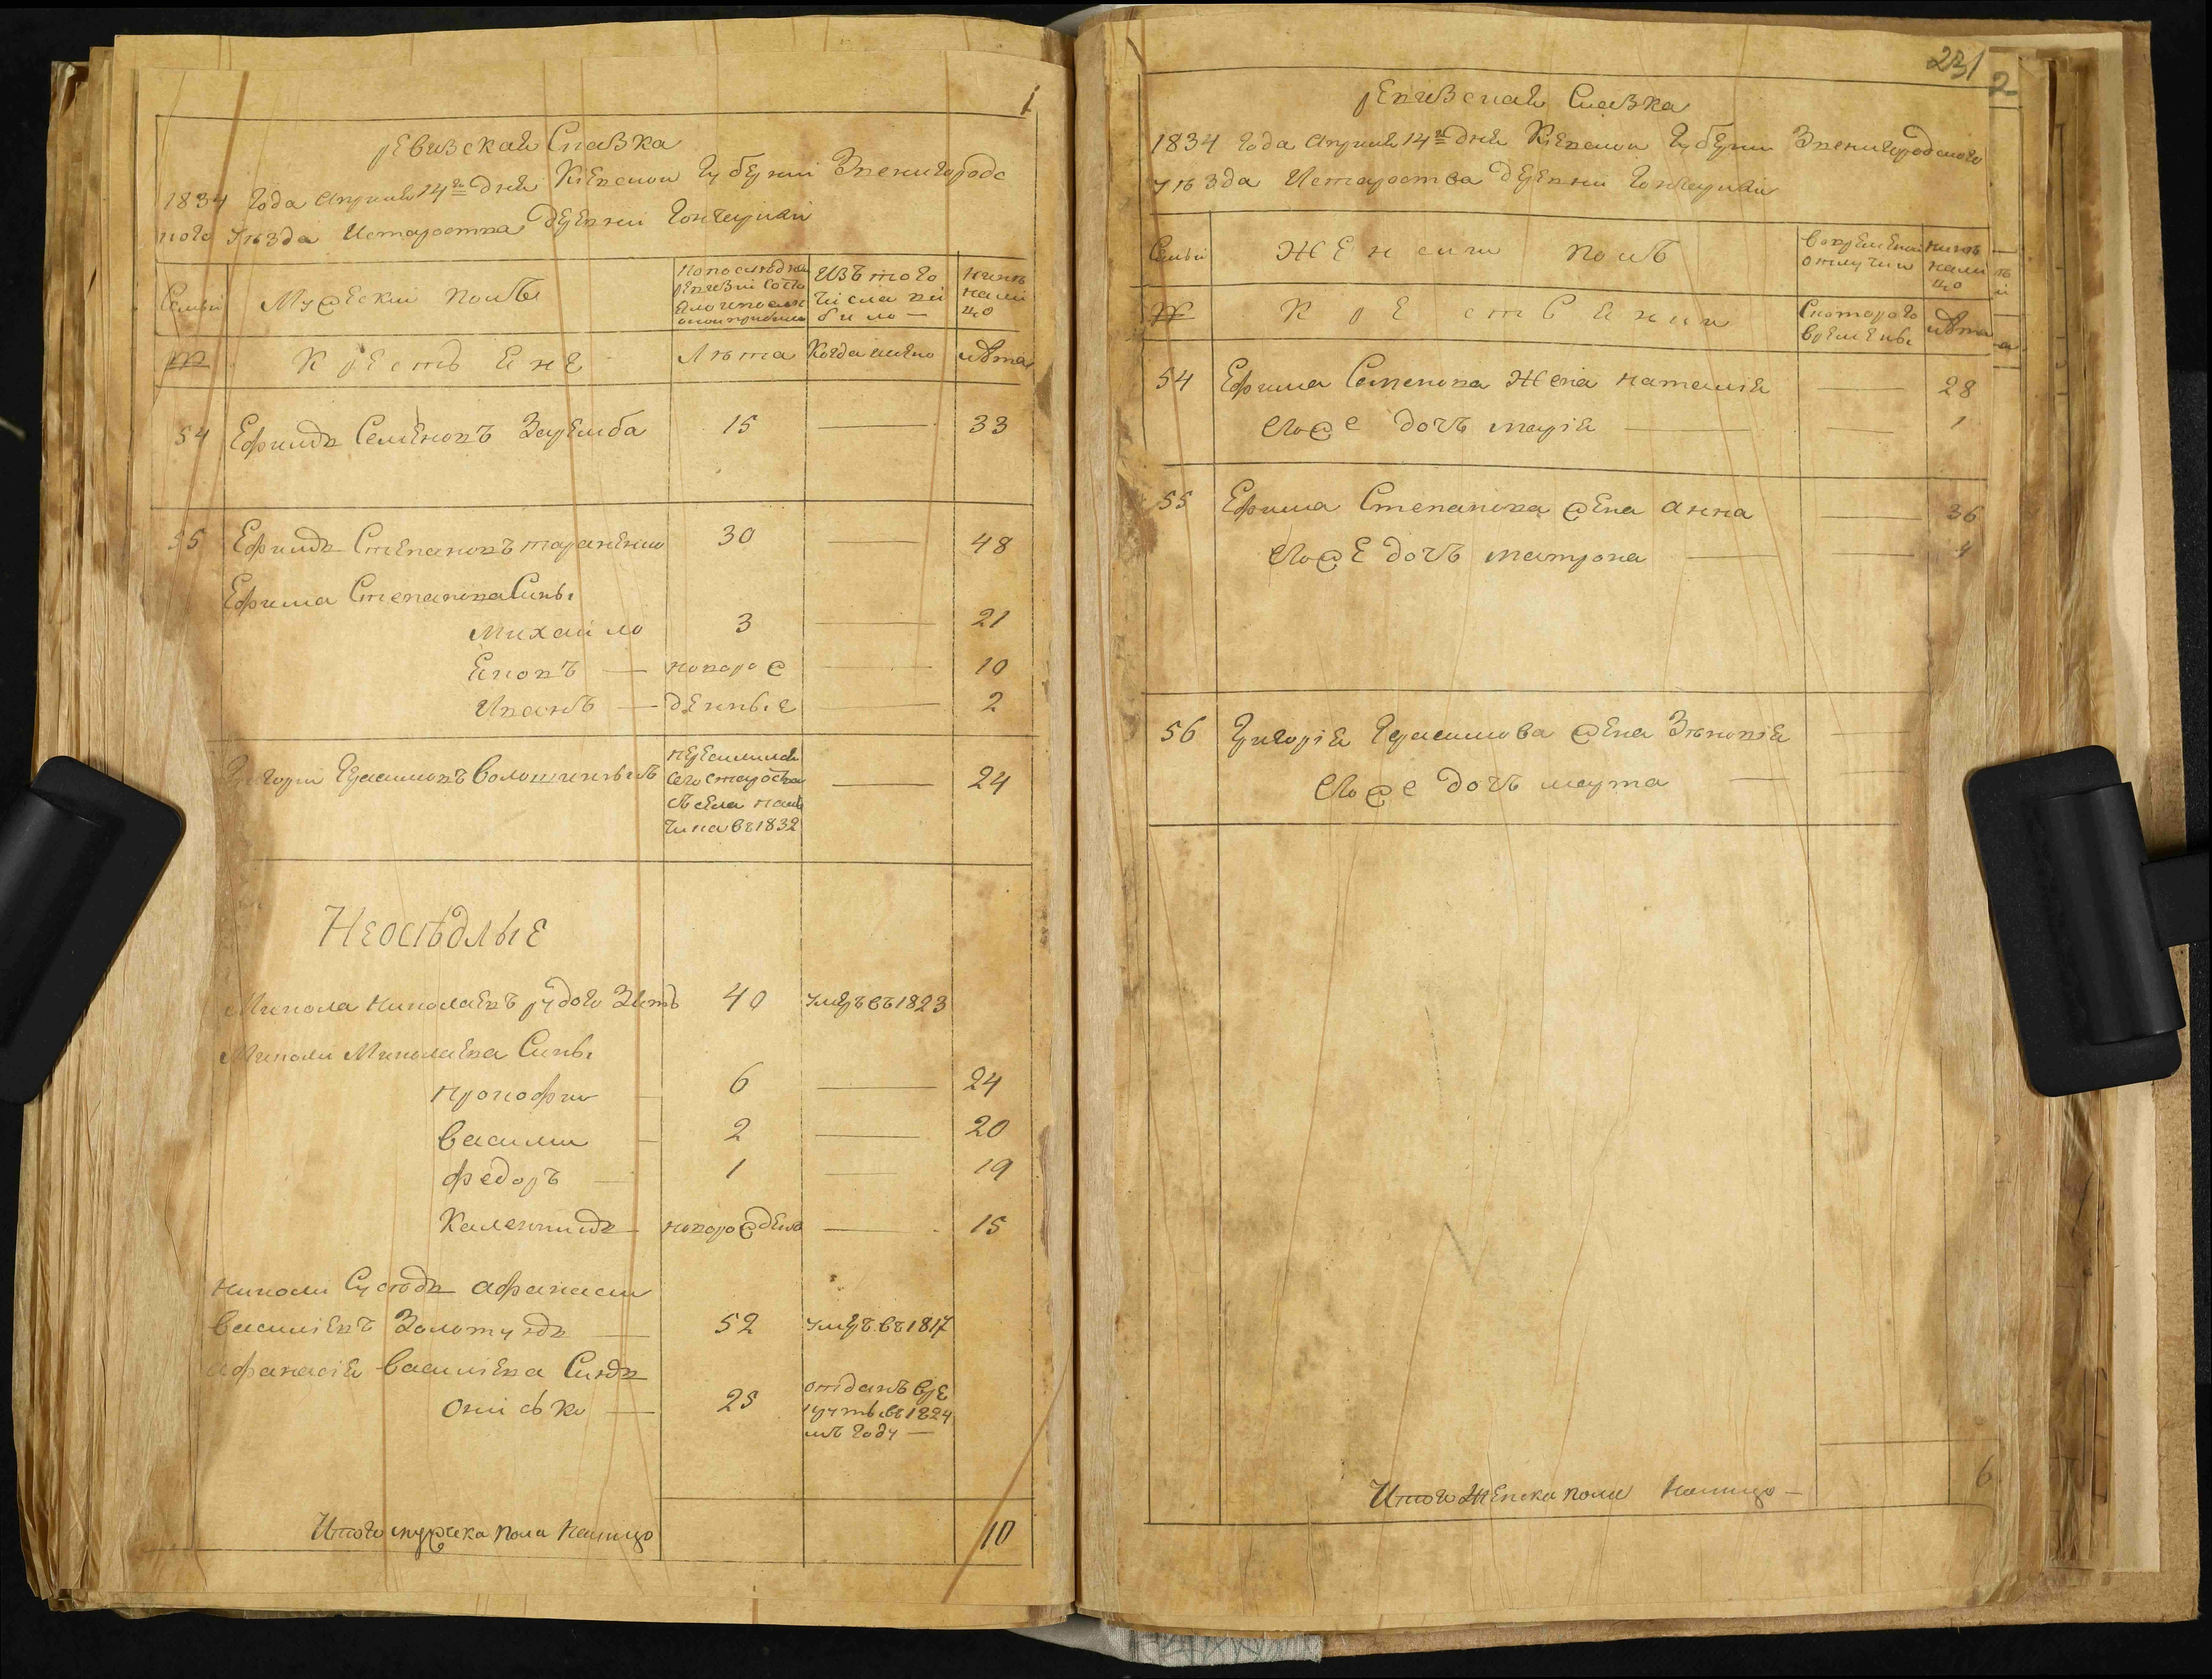 1
Ревизская Сказка
1834 Года Апреля 14го Дня Киевской Губернии Звенигородс
кого Уезда Истаростка Деревни Гончарихи
Семьи
Мужеский Полъ
По последней ревизии состояло и после оной прибыло
Изъ того числа выбыло
Ныне налицо
№
Крестьяне
Лета
Когда имено
Лета
54 Ефимъ Семеновъ Заремба 15 — 33
55 Ефимъ Степановъ Тараненко 30 — 48
Ефима Степанова Сины
Михайло 3 — 21
Яковъ — новорож — 10
Иванъ — денные — 2
Григорий Герасимовъ Волошиновичъ — 24
въ 1832
Неоседлые
Микола Николаевъ 40 умеръ въ 1823
Миколы Миколаева Сины
Прокофий 6 — 24
Василий — 2 — 20
Федоръ — 1 — 19
Каленникъ — новорождено — 15
Николы Суседъ Афанасий
Василиевъ Золотухъ — 52 умеръ въ 1817
Афанасия Василиева Синъ
Онисько — 25 отданъ в ре
круты въ 1824
мъ году —
Итого мужеска пола налицо 10
231
2
Ревизская Сказка
1834 Года Апреля 14го Дня Киевской Губернии Звенигородского
Уезда Истароства Деревни Гончарихи
Семьи
Женский Полъ
Во временной отлучки
Ныне налицо
№
Крестьянки
С которого времены
Лета
54 Ефима Семенова Жена Наталия — 28
Его же дочъ Мария — — 1
55 Ефима Степанова жена Анна — 36
Его же дочъ Матрона — — 4
56 Григория Герасимова жена Зеновия —
Его же дочъ Марта — —
Итого Женска пола Налицо — 6